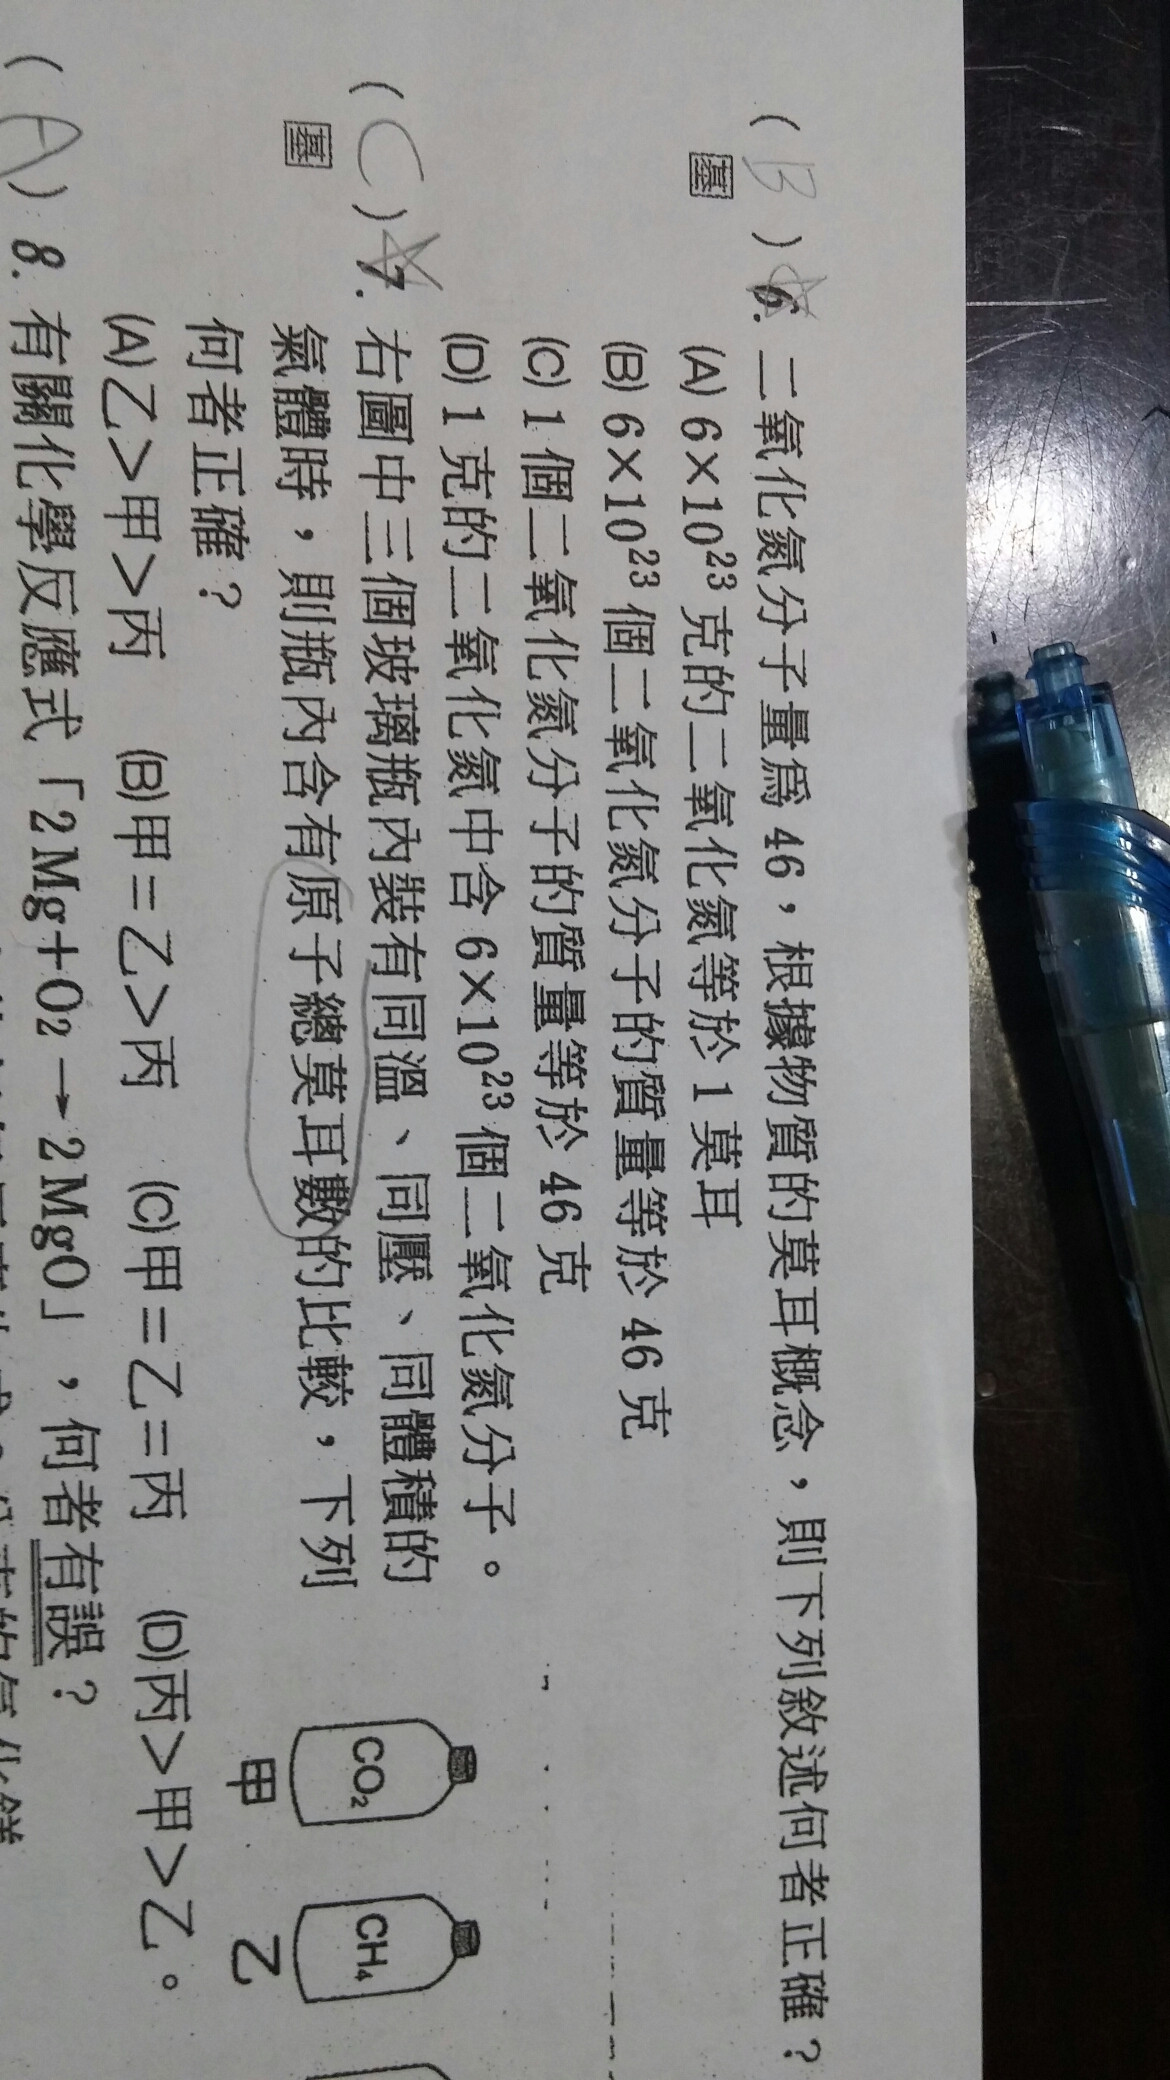 ( B ) 6. 二氧化氮分子量為 46，根據物質的莫耳概念，則下列敘述何者正確？
基
(A) 6×10²³ 克的二氧化氮等於 1 莫耳
(B) 6×10²³ 個二氧化氮分子的質量等於 46 克
(C) 1 個二氧化氮分子的質量等於 46 克
(D) 1 克的二氧化氮中含 6×10²³ 個二氧化氮分子。
( C ) 7. 右圖中三個玻璃瓶內裝有同溫、同壓、同體積的
基
氣體時，則瓶內含有原子總莫耳數的比較，下列
何者正確？
(A)乙＞甲＞丙 (B)甲＝乙＞丙 (C)甲＝乙＝丙 (D)丙＞甲＞乙。
CO₂
甲
CH₄
乙
( A ) 8. 有關化學反應式「2Mg+O₂→2MgO」，何者有誤？